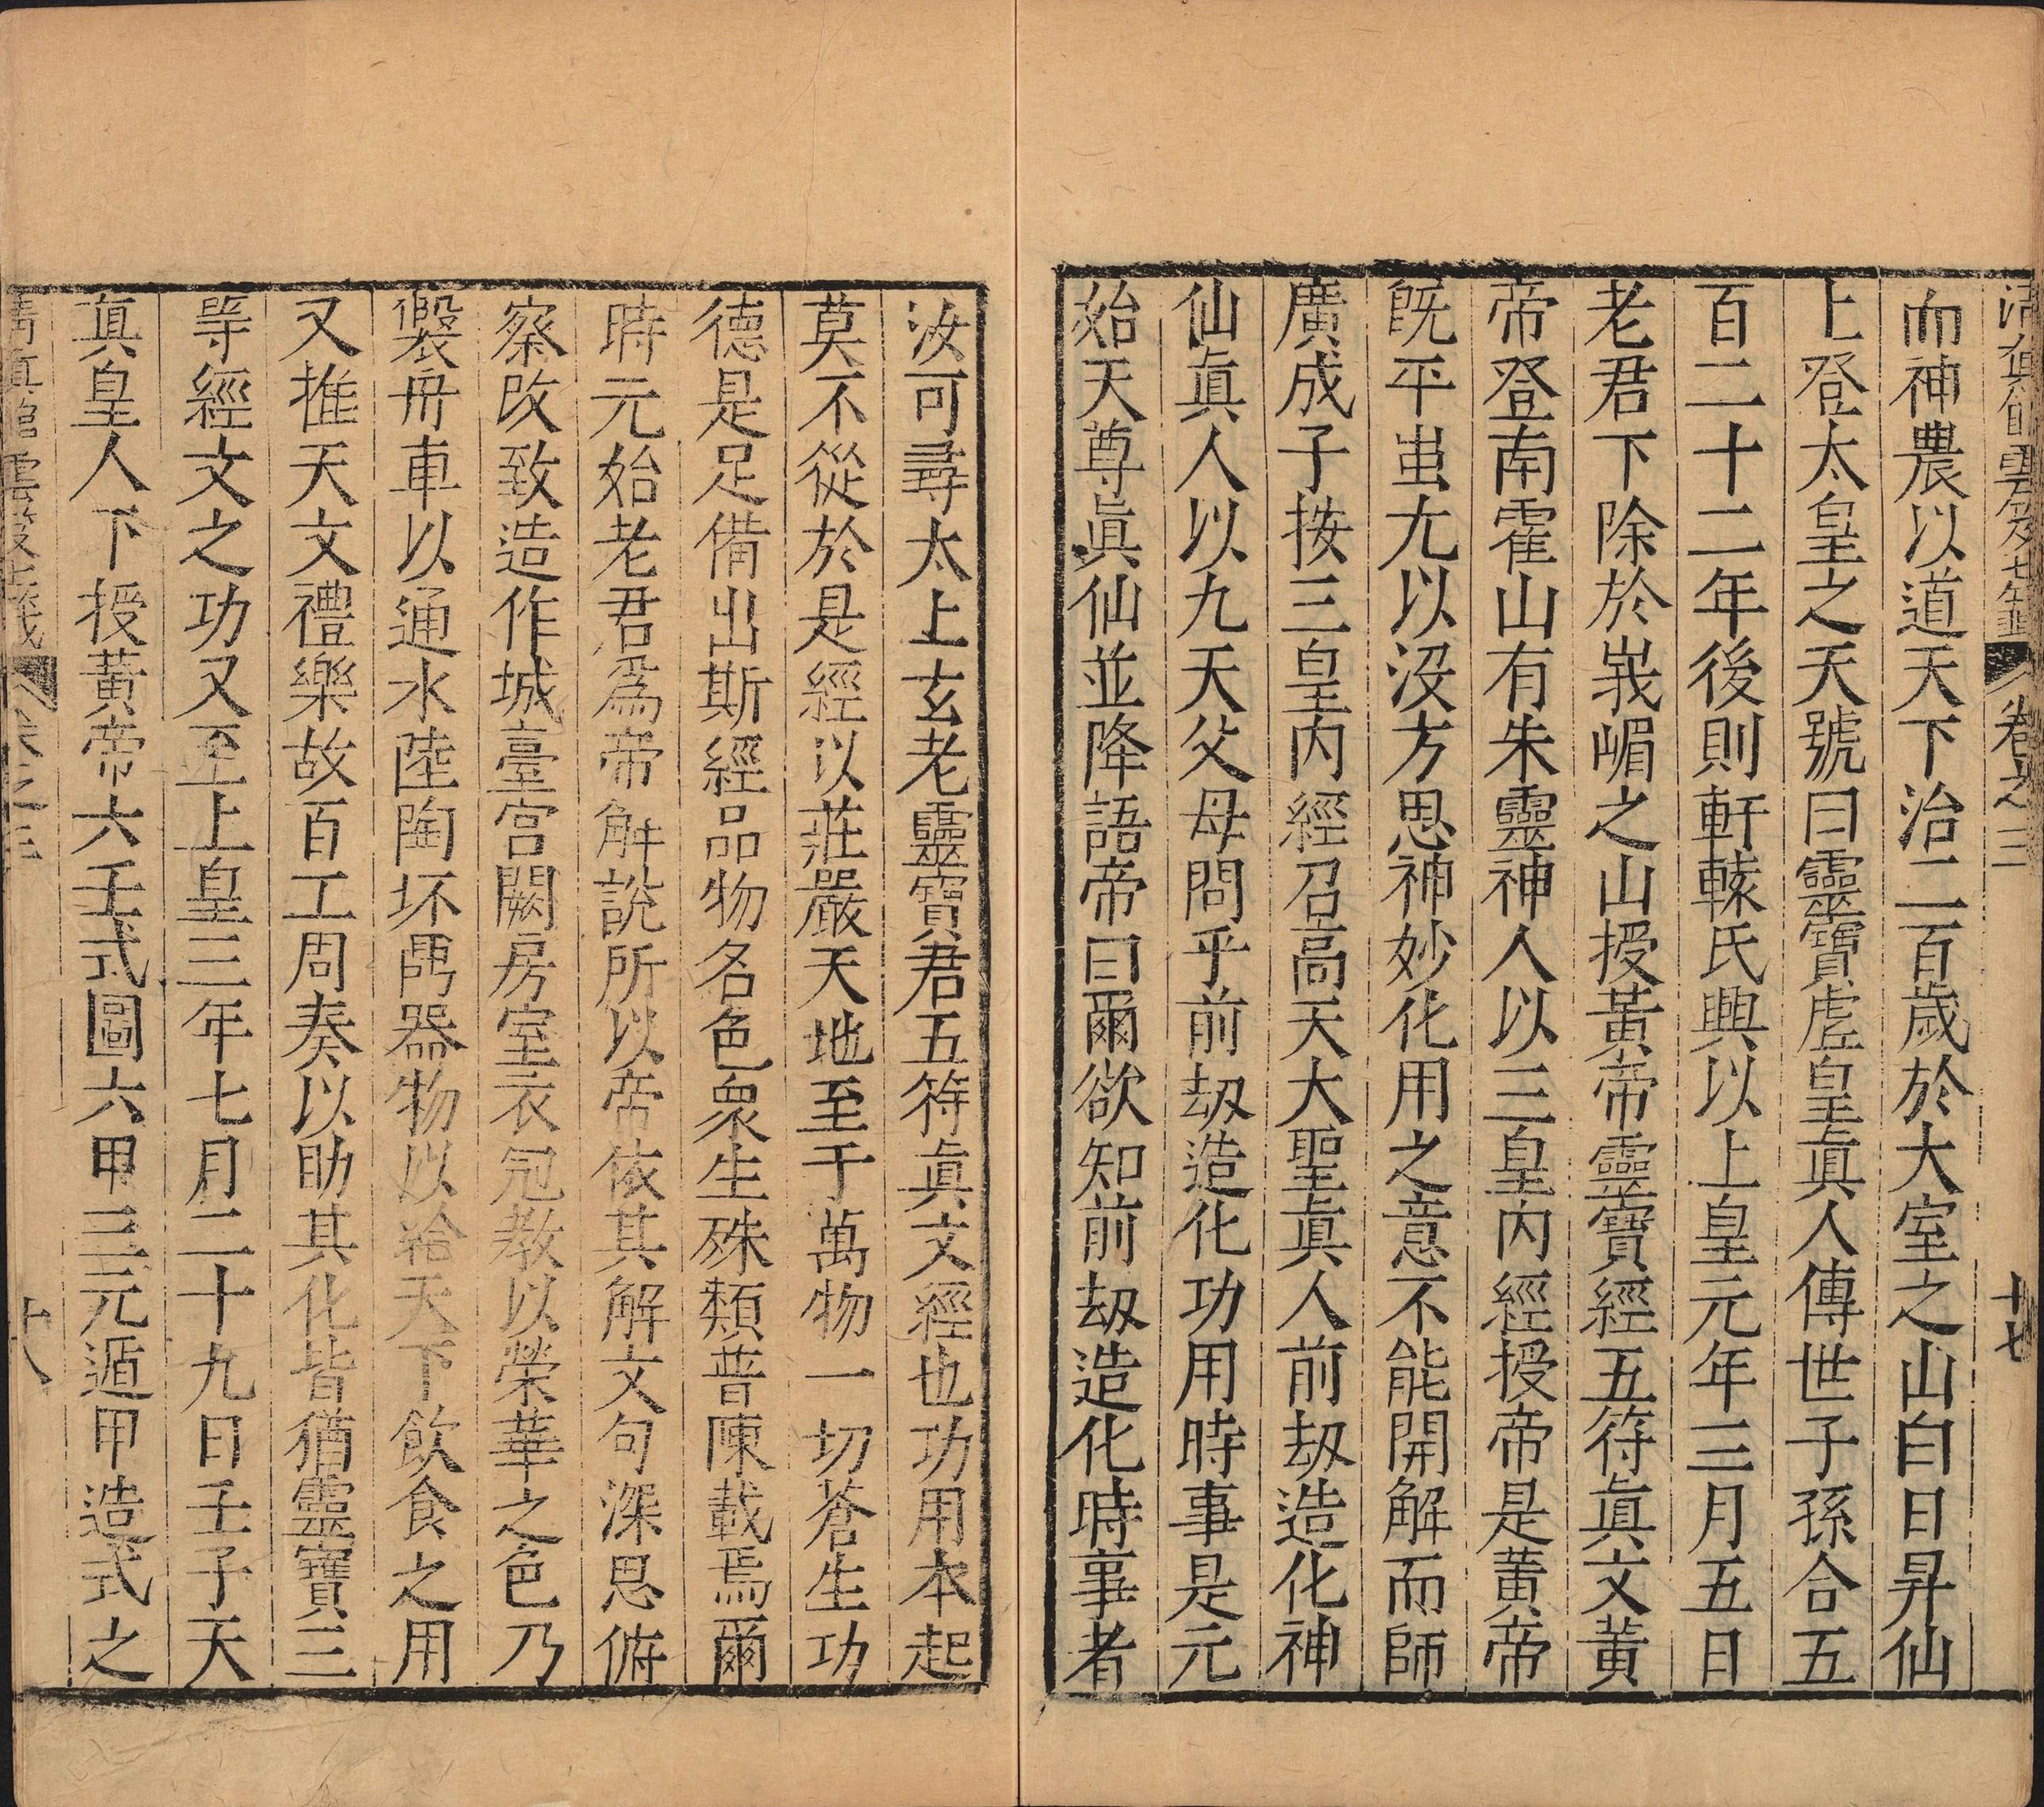 清真館雲笈七籤 卷之三 十七
而神農以道天下治二百歲於大室之山白日昇仙
上登太皇之天號曰靈寶虛皇真人傳世子孫合五
百二十二年後則軒轅氏興以上皇元年三月五日
老君下除於峩嵋之山授黃帝靈寶經五符真文黃
帝登南霍山有朱靈神人以三皇內經授帝是黃帝
旣平蚩尤以沒方思神妙化用之意不能開解而師
廣成子按三皇內經召高天大聖真人前刼造化神
仙真人以九天父母問乎前刼造化功用時事是元
始天尊真仙並降語帝曰爾欲知前刼造化時事者
汝可尋太上玄老靈寶君五符真文經也功用本起
莫不從於是經以莊嚴天地至于萬物一切蒼生功
德是足備出斯經品物名色衆生殊類普陳載焉爾
時元始老君爲帝解說所以帝依其解文句深思俯
察改致造作城臺宫闕房室衣冠教以榮華之色乃
製舟車以通水陸陶坏䦂器物以給天下飲食之用
又推天文禮樂故百工周奏以助其化皆猶靈寶三
等經文之功又至上皇三年七月二十九日壬子天
真皇人下授黃帝六壬式圖六甲三元遁甲造式之
清真館雲笈七籤 卷之三 十八